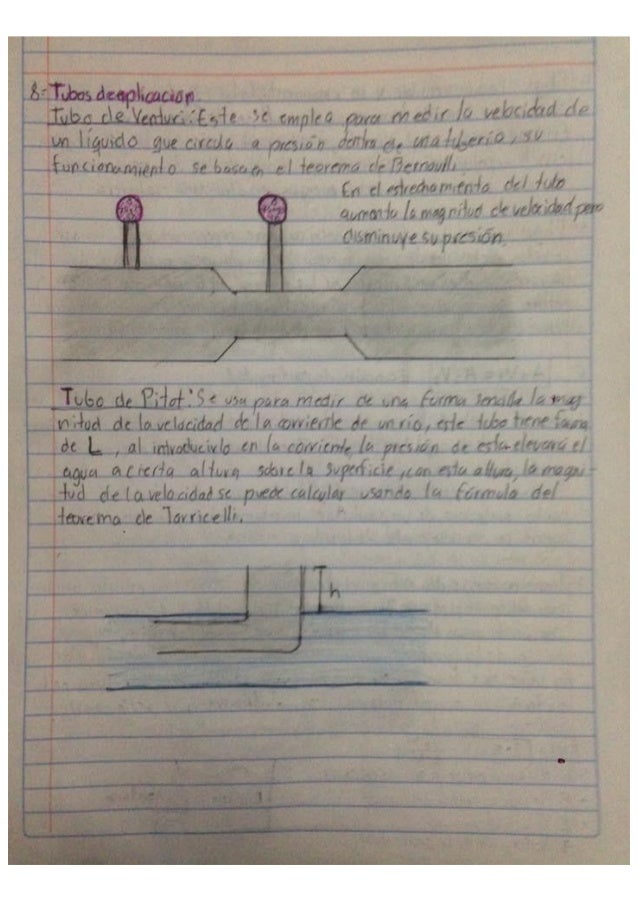 8- Tubos de aplicación.
Tubo de Venturi: Este se emplea para medir la velocidad de
un líquido que circula a presión dentro de una tubería, su
funcionamiento se basa en el teorema de Bernoulli
En el estrechamiento del tubo
aumenta la magnitud de velocidad pero
disminuye su presión.
Tubo de Pitot: Se usa para medir de una forma sencilla la mag
nitud de la velocidad de la corriente de un río, este tubo tiene forma
de L, al introducirlo en la corriente, la presión de esta elevará el
agua a cierta altura sobre la superficie, con esta altura, la magni-
tud de la velocidad se puede calcular usando la fórmula del
teorema de Torricelli.
h